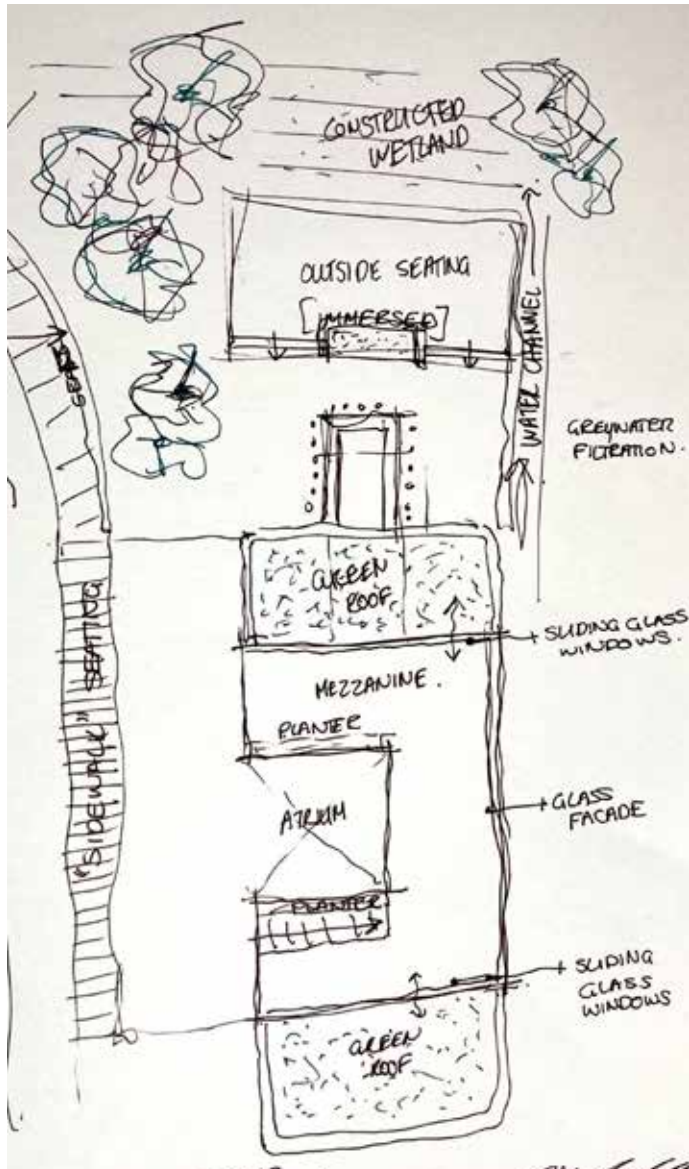 CONSTRUCTED
WETLAND
OUTSIDE SEATING
[IMMERSED]
WATER CHANNEL
GREYWATER
FILTRATION.
GREEN
ROOF
SLIDING GLASS
WINDOWS.
MEZZANINE.
PLANTER
"SIDEWALK" SEATING
ATRIUM
GLASS
FACADE
PLANTER
SLIDING
GLASS
WINDOWS
GREEN
ROOF